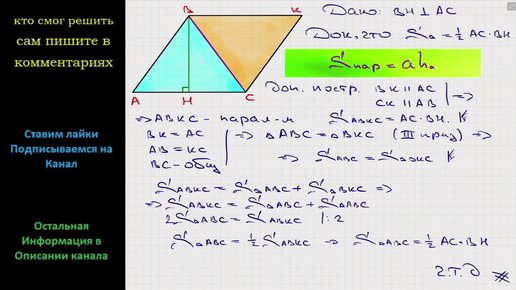 кто смог решить
сам пишите в
комментариях
Ставим лайки
Подписываемся на
Канал
Остальная
Информация в
Описании канала
B K
A H C
Дано: BH ⊥ AC
Док, что S△ = ½ AC·BH
Sпар = aha
Доп. постр. BK ∥ AC
CK ∥ AB | ⇒
⇒ ABKC - парал-м SABKC = AC·BH.
BK = AC
AB = KC | ⇒ △ABC = △BKC (III приз) ⇒
BC - общ ⇒ S△ABC = S△BKC
SABKC = S△ABC + S△BKC ⇒
⇒ SABKC = S△ABC + S△ABC
2S△ABC = SABKC |:2
S△ABC = ½ SABKC ⇒ S△ABC = ½ AC·BH
ч.т.д